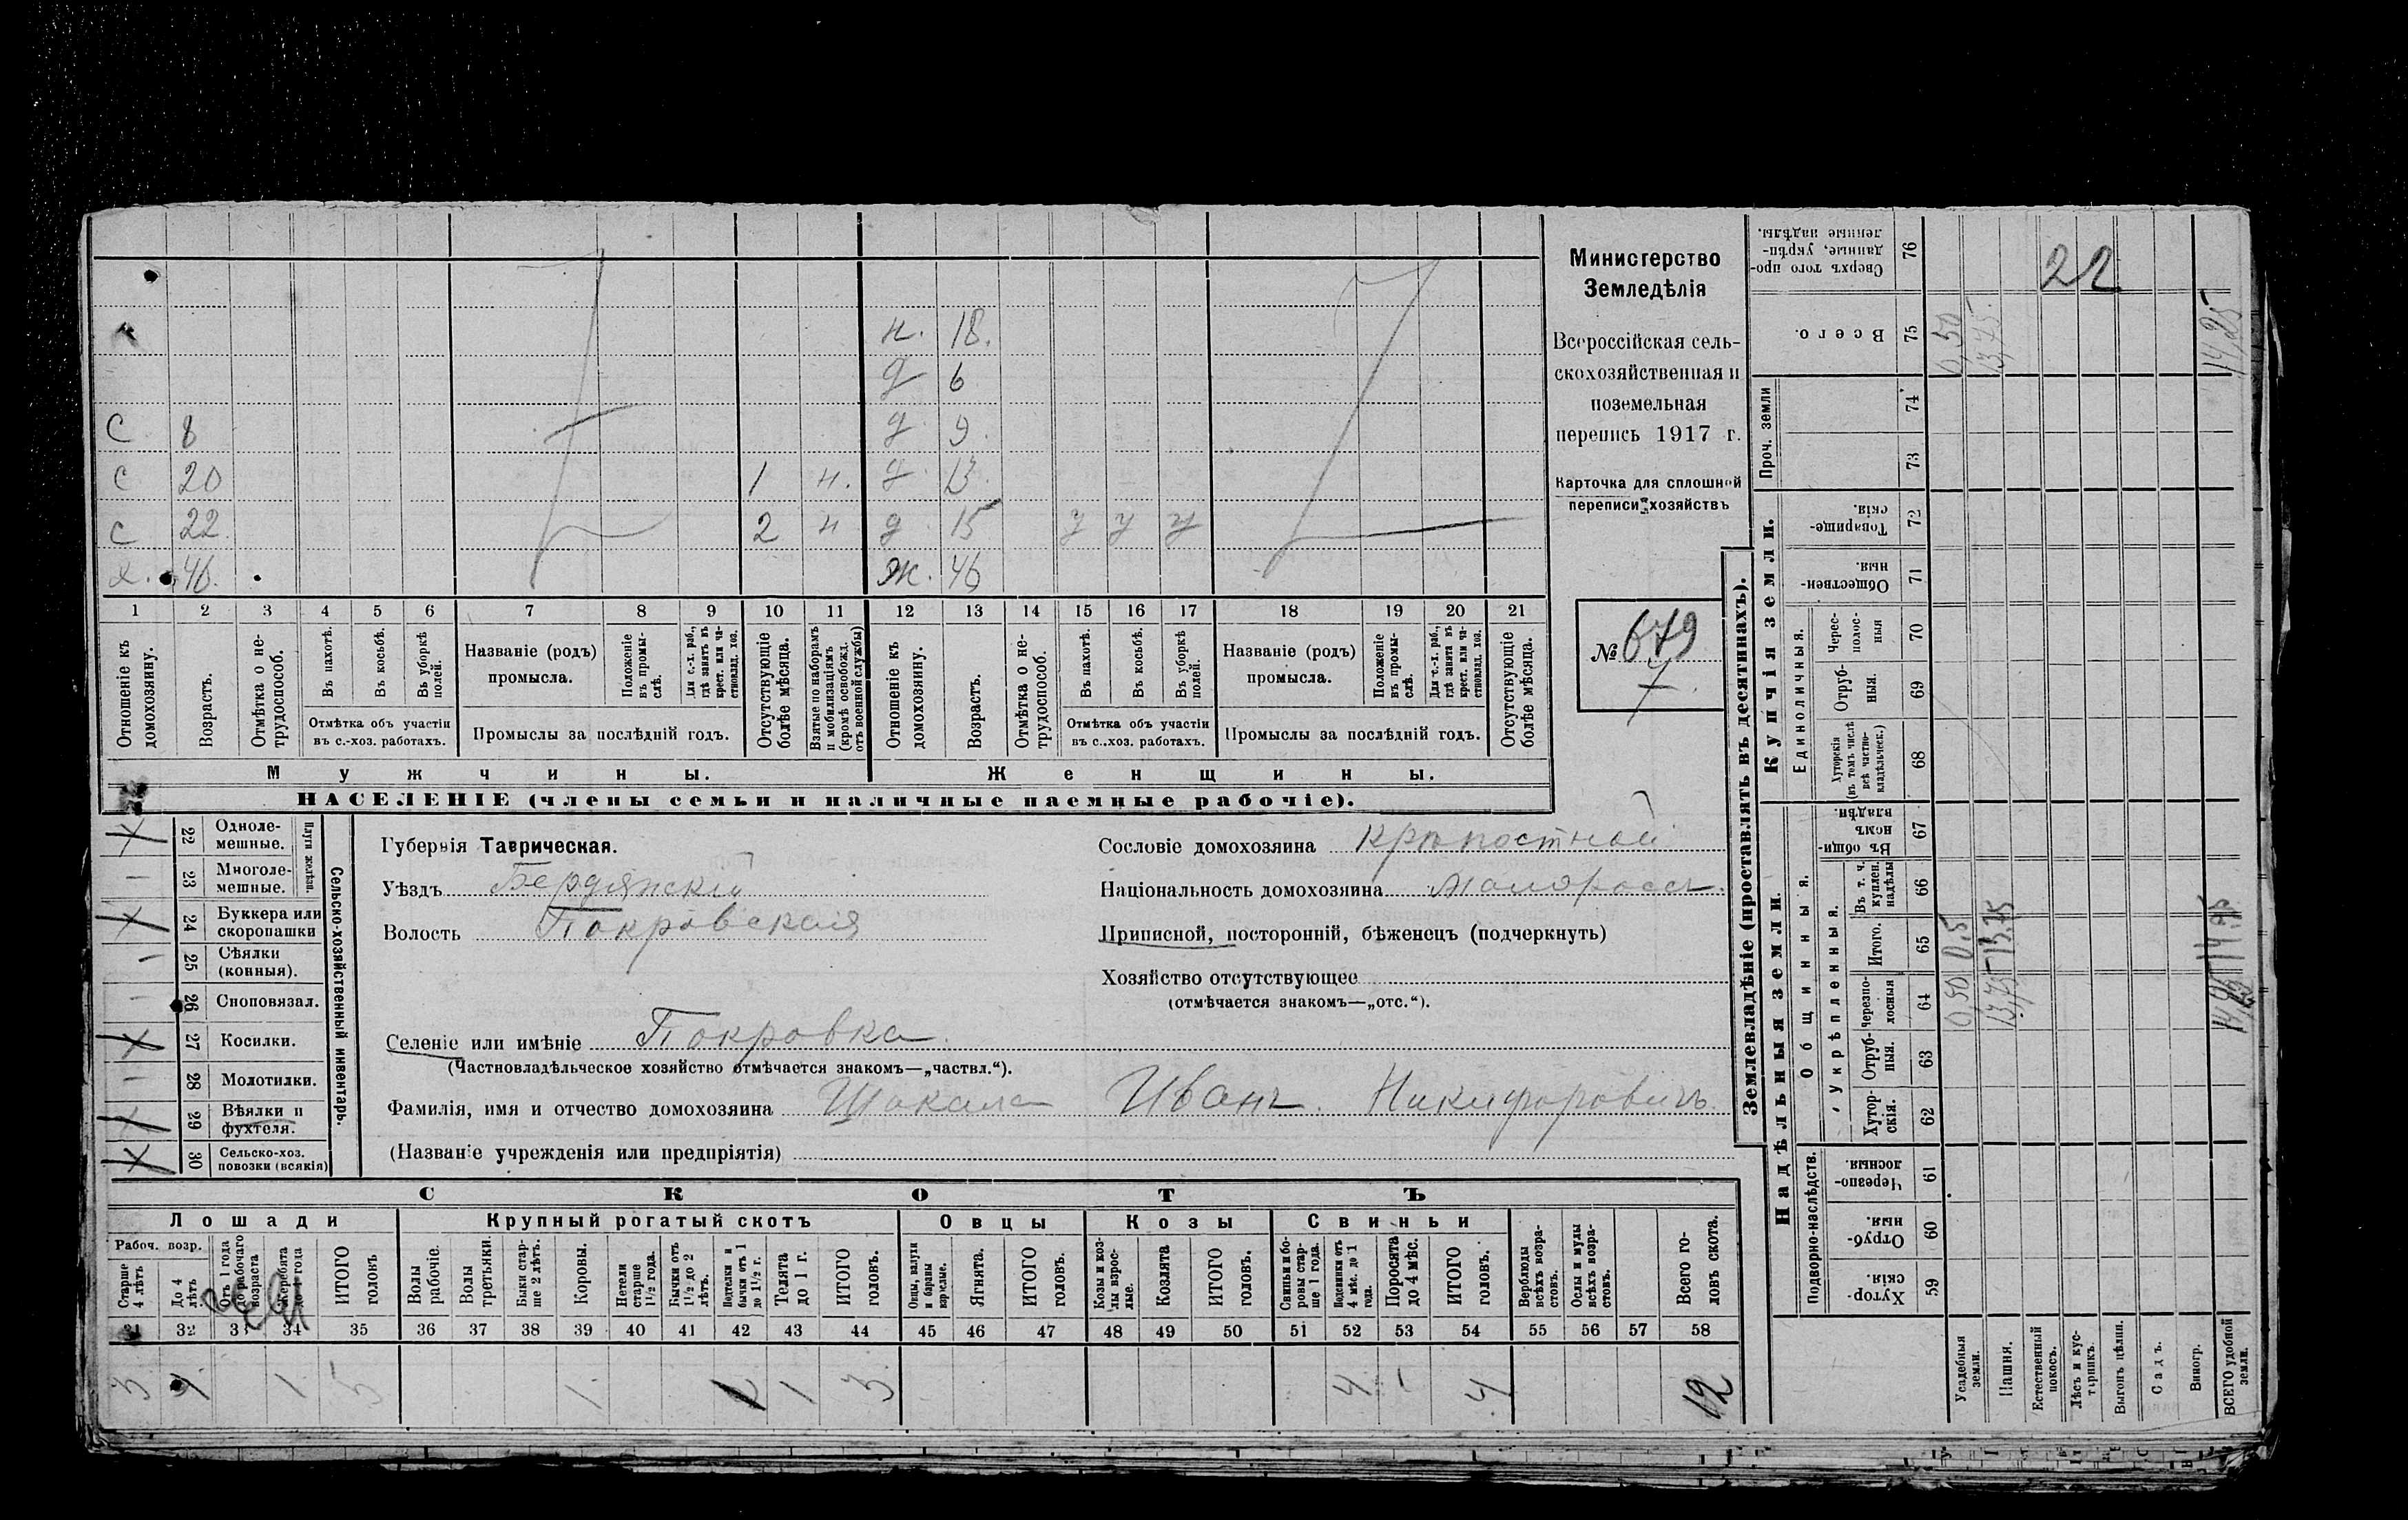 н. 18.
д 6
С 8 д. 9.
С 20 1 н. д. 13.
С 22. 2 н д. 15 у у у
Я. 46. Ж. 46
1 2 3 4 5 6 7 8 9 10 11 12 13 14 15 16 17 18 19 20 21
Отношеніе къ домохозяину.
Возрастъ.
Отмѣтка о нетрудоспособ.
Въ пахотѣ.
Въ косьбѣ.
Въ уборкѣ полей.
Отмѣтка объ участіи
въ с.-хоз. работахъ.
Названіе (родъ)
промысла.
Положеніе въ промыслѣ.
Для с.-х. раб., гдѣ занятъ въ крест. или частновлад. хоз.
Промыслы за послѣдній годъ.
Отсутствующіе болѣе мѣсяца.
Взятые по наборамъ и мобилизаціямъ (кромѣ освобожд. отъ военной службы)
Отношеніе къ домохозяину.
Возрастъ.
Отмѣтка о нетрудоспособ.
Въ пахотѣ.
Въ косьбѣ.
Въ уборкѣ полей.
Отмѣтка объ участіи
въ с.-хоз. работахъ.
Названіе (родъ)
промысла.
Положеніе въ промыслѣ.
Для с.-х. раб., гдѣ занята въ крест. или частновлад. хоз.
Промыслы за послѣдній годъ.
Отсутствующіе болѣе мѣсяца.
Мужчины. Женщины.
НАСЕЛЕНІЕ (члены семьи и наличные наемные рабочіе).
Министерство
Земледѣлія
Всероссійская сель-
скохозяйственная и
поземельная
перепись 1917 г.
Карточка для сплошной
переписи хозяйствъ
№ 679
7
22 Одноле-
мешные.
23 Многоле-
мешные.
Плуги желѣзн.
24 Буккера или
скоропашки
25 Сѣялки
(конныя).
26 Сноповязал.
27 Косилки.
28 Молотилки.
29 Вѣялки и
фухтеля.
30 Сельско-хоз.
повозки (всякія)
Сельско-хозяйственный инвентарь.
Губернія Таврическая.
Уѣздъ Бердянскій
Волость Покровская
Сословіе домохозяина крѣпостной
Національность домохозяина Малороссъ.
Приписной, посторонній, бѣженецъ (подчеркнуть)
Хозяйство отсутствующее
(отмѣчается знакомъ—„отс.“).
Селеніе или имѣніе Покровка.
(Частновладѣльческое хозяйство отмѣчается знакомъ—„частвл.“).
Фамилія, имя и отчество домохозяина Шакала Иванъ. Никифоровичъ.
(Названіе учрежденія или предпріятія)
СКОТЪ
Лошади Крупный рогатый скотъ Овцы Козы Свиньи
Рабоч. возр.
Старше 4 лѣтъ
До 4 лѣтъ
Отъ 1 года до рабочаго возраста
Жеребята до 1 года
ИТОГО головъ
Волы рабочіе.
Волы третьяки.
Быки старше 2 лѣтъ.
Коровы.
Нетели старше 1 1/2 года.
Бычки отъ 1 1/2 до 2 лѣтъ.
Подтелки и бычки отъ 1 до 1 1/2 г.
Телята до 1 г.
ИТОГО головъ.
Овцы, валухи и бараны взрослые.
Ягнята.
ИТОГО головъ.
Козы и козлы взрослые.
Козлята
ИТОГО головъ.
Свиньи и боровы старше 1 года.
Подсвинки отъ 4 мѣс. до 1 года.
Поросята до 4 мѣс.
ИТОГО головъ.
Верблюды всѣхъ возрастовъ.
Ослы и мулы всѣхъ возрастовъ.
Всего головъ скота.
31 32 33 34 35 36 37 38 39 40 41 42 43 44 45 46 47 48 49 50 51 52 53 54 55 56 57 58
3 1 5 1 1 1 3 4 4 12
Землевладѣніе (проставлять въ десятинахъ).
Надѣльныя земли. Купчія земли.
Подворно-наслѣдств.
Общинныя.
Укрѣпленныя.
Единоличныя.
Проч. земли
Хуторскія. 59
Отрубныя. 60
Черезполосныя. 61
Хуторскія. 62
Отрубныя. 63
Черезполосныя 64
Итого. 65
Въ т. ч. куплен. надѣлы 66
Въ общинномъ владѣн. 67
Хуторскія (въ томъ числѣ всѣ частновладѣльческ.) 68
Отрубныя. 69
Чересполосныя 70
Общественныя. 71
Товарищескія. 72
73
74
Всего. 75
Сверхъ того проданные, укрѣпленные надѣлы. 76
Усадебныя земли. 0,50 0,5 0,50
Пашня. 13,75 13,75 13,75
Естественный покосъ.
Лѣсъ и кустарникъ.
Выгонъ цѣлин.
Садъ.
Виногр.
ВСЕГО удобной земли. 14,25
22